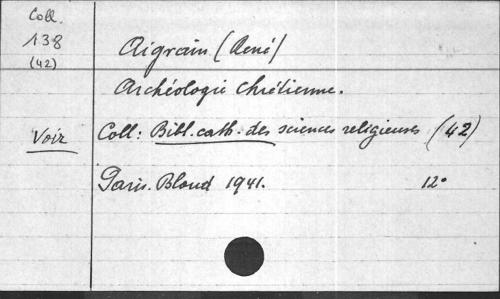 Coll.
138
(42)
Aigrain (René)
Archéologie chrétienne.
Voir
Coll: Bibl. cath. des sciences religieuses (42)
Paris. Bloud 1941. 12°